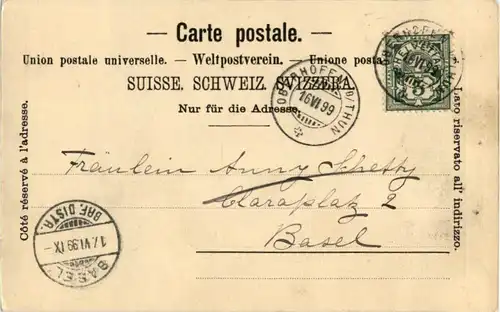 — Carte postale. —
Union postale universelle. — Weltpostverein. — Unione posta
SUISSE. SCHWEIZ. SVIZZERA.
Nur für die Adresse.
Côté réservé à l'adresse.
Lato riservato all' indirizzo.
HELVETIA
5
OBERHOFEN
16 VI 99
(THUN
Fräulein Anny Schetty
Claraplatz 2
Basel
BRF. DISTR.
17. VI. 99. IX -
BASEL